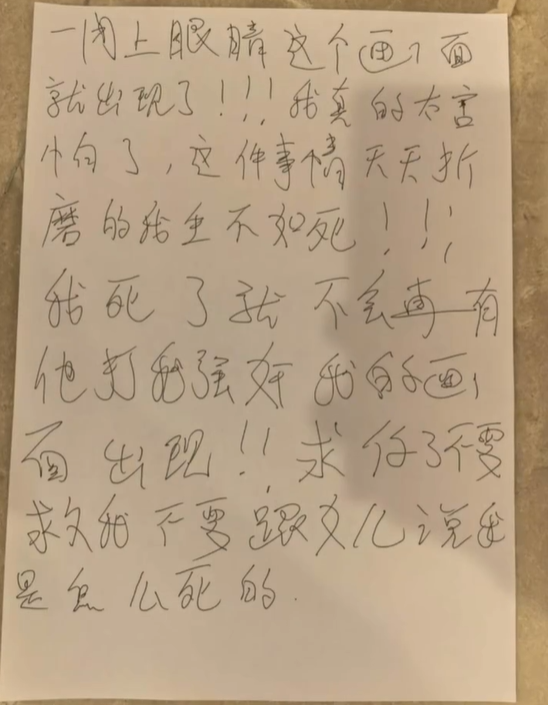 一闭上眼睛这个画面
就出现了!!!我真的太害
怕了,这件事情天天折
磨的我生不如死!!!
我死了就不会再有
他打我强奸我的画
面出现!!求你了不要
救我不要跟女儿说我
是怎么死的.